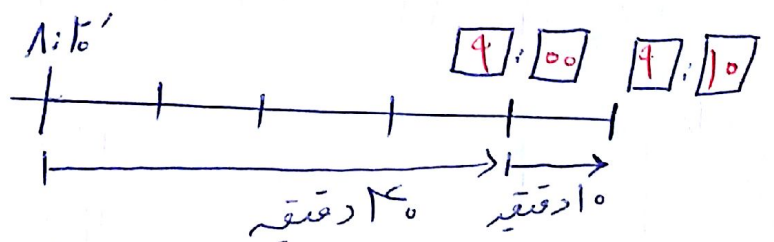 ۸:۲۰′
۹ : ۰۰
۹ : ۱۰
۴۰ دقیقه
۱۰ دقیقه